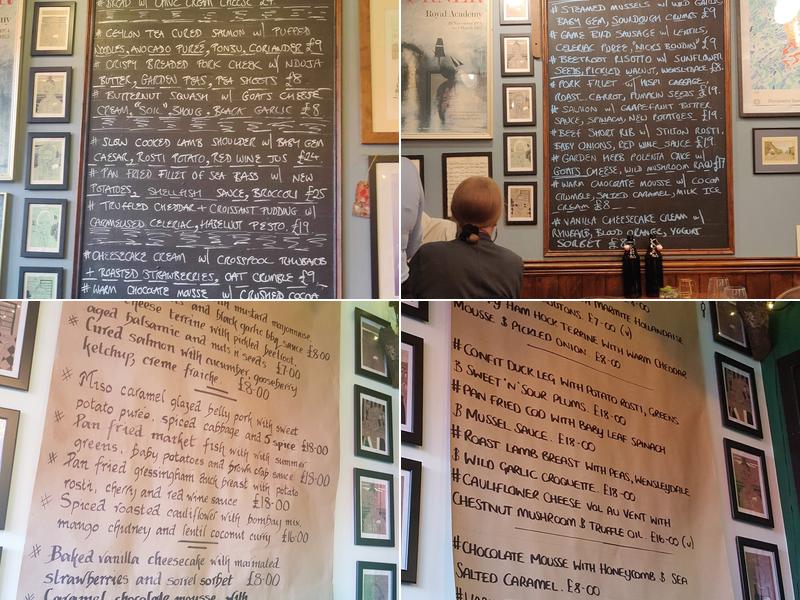 BREAD w/ CHIVE CREAM CHEESE £4
# CEYLON TEA CURED SALMON w/ PUFFED
NOODLES, AVOCADO PUREE, PONZU, CORIANDER £9
* CRISPY BREADED PORK CHEEK w/ NDUJA
BUTTER, GARDEN PEAS, PEA SHOOTS £8
* BUTTERNUT SQUASH w/ GOATS CHEESE
CREAM, "SOIL", BLACK GARLIC £8
# SLOW COOKED LAMB SHOULDER w/ BABY GEM
CAESAR, ROSTI POTATO, RED WINE JUS £24
* PAN FRIED FILLET OF SEA BASS w/ NEW
POTATOES, SHELLFISH SAUCE, BROCCOLI £25
* TRUFFLED CHEDDAR + CROISSANT PUDDING w/
CARAMELISED CELERIAC, HAZELNUT PESTO. £19
#CHEESECAKE CREAM w/ CROSSPOOL RHUBARB
+ ROASTED STRAWBERRIES, OAT CRUMBLE £9
* WARM CHOCOLATE MOUSSE w/ CRUSHED COCOA
Royal Academy
# STEAMED MUSSELS w/ WILD GARLIC
BABY GEM, SOURDOUGH CRUMBS £9
# GAME BIRD SAUSAGE w/ LENTILS,
CELERIAC PUREE, 'NICKS BOUDIN' £9
# BEETROOT RISOTTO w/ SUNFLOWER
SEEDS, PICKLED WALNUT, WENSLEYDALE £8
#PORK FILLET w/ HISPI CABBAGE,
ROAST CARROT, PUMPKIN SEEDS £19.
#SALMON w/ GRAPEFRUIT BUTTER
SAUCE, SPINACH, NEW POTATOES. £19.
#BEEF SHORT RIB w/ STILTON ROSTI,
BABY ONIONS, RED WINE SAUCE £19.
# GARDEN HERB POLENTA CAKE w/
GOATS CHEESE, WILD MUSHROOM RAGU £17
#WARM CHOCOLATE MOUSSE w/ COCOA
CRUMBLE, SALTED CARAMEL, MILK ICE
CREAM £8
# VANILLA CHEESECAKE CREAM w/
RHUBARB, BLOOD ORANGE, YOGURT
SORBET £8
mustard mayonnaise,
and black garlic bbq sauce £8·00
cheese terrine with pickled beetroot,
aged balsamic and nuts n seeds £7·00
Cured salmon with cucumber, gooseberry
ketchup, creme fraiche. £8·00
# Miso caramel glazed belly pork with sweet
potato puree, spiced cabbage and 5 spice £18·00
* Pan fried market fish with with summer
greens, baby potatoes and brown crab sauce £18·00
* Pan fried gressingham duck breast with potato
rosti, cherry and red wine sauce £18·00
* Spiced roasted cauliflower with bombay mix,
mango chutney and lentil coconut curry £16·00
# Baked vanilla cheesecake with marinated
strawberries and sorrel sorbet £8·00
Caramel chocolate mousse with
WITH MARMITE HOLLANDAISE
CROUTONS. £7-00 (v)
HAM HOCK TERRINE WITH WARM CHEDDAR
MOUSSE & PICKLED ONION. £8-00
#CONFIT DUCK LEG WITH POTATO ROSTI, GREENS
& SWEET 'N' SOUR PLUMS. £18-00
#PAN FRIED COD WITH BABY LEAF SPINACH
& MUSSEL SAUCE. £18-00
#ROAST LAMB BREAST WITH PEAS, WENSLEYDALE
& WILD GARLIC CROQUETTE. £18-00
#CAULIFLOWER CHEESE VOL AU VENT WITH
CHESTNUT MUSHROOM & TRUFFLE OIL. £16-00 (v)
#CHOCOLATE MOUSSE WITH HONEYCOMB & SEA
SALTED CARAMEL. £8-00